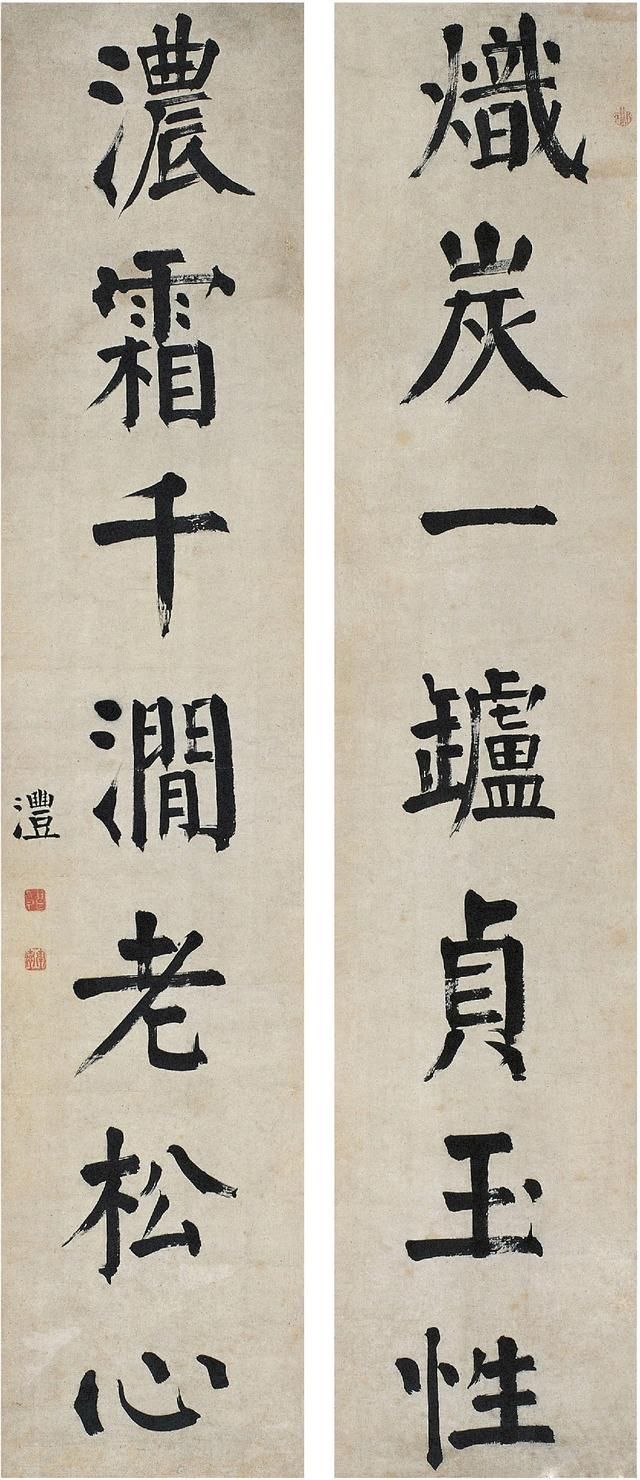 熾炭一罏貞玉性
濃霜千澗老松心
灃